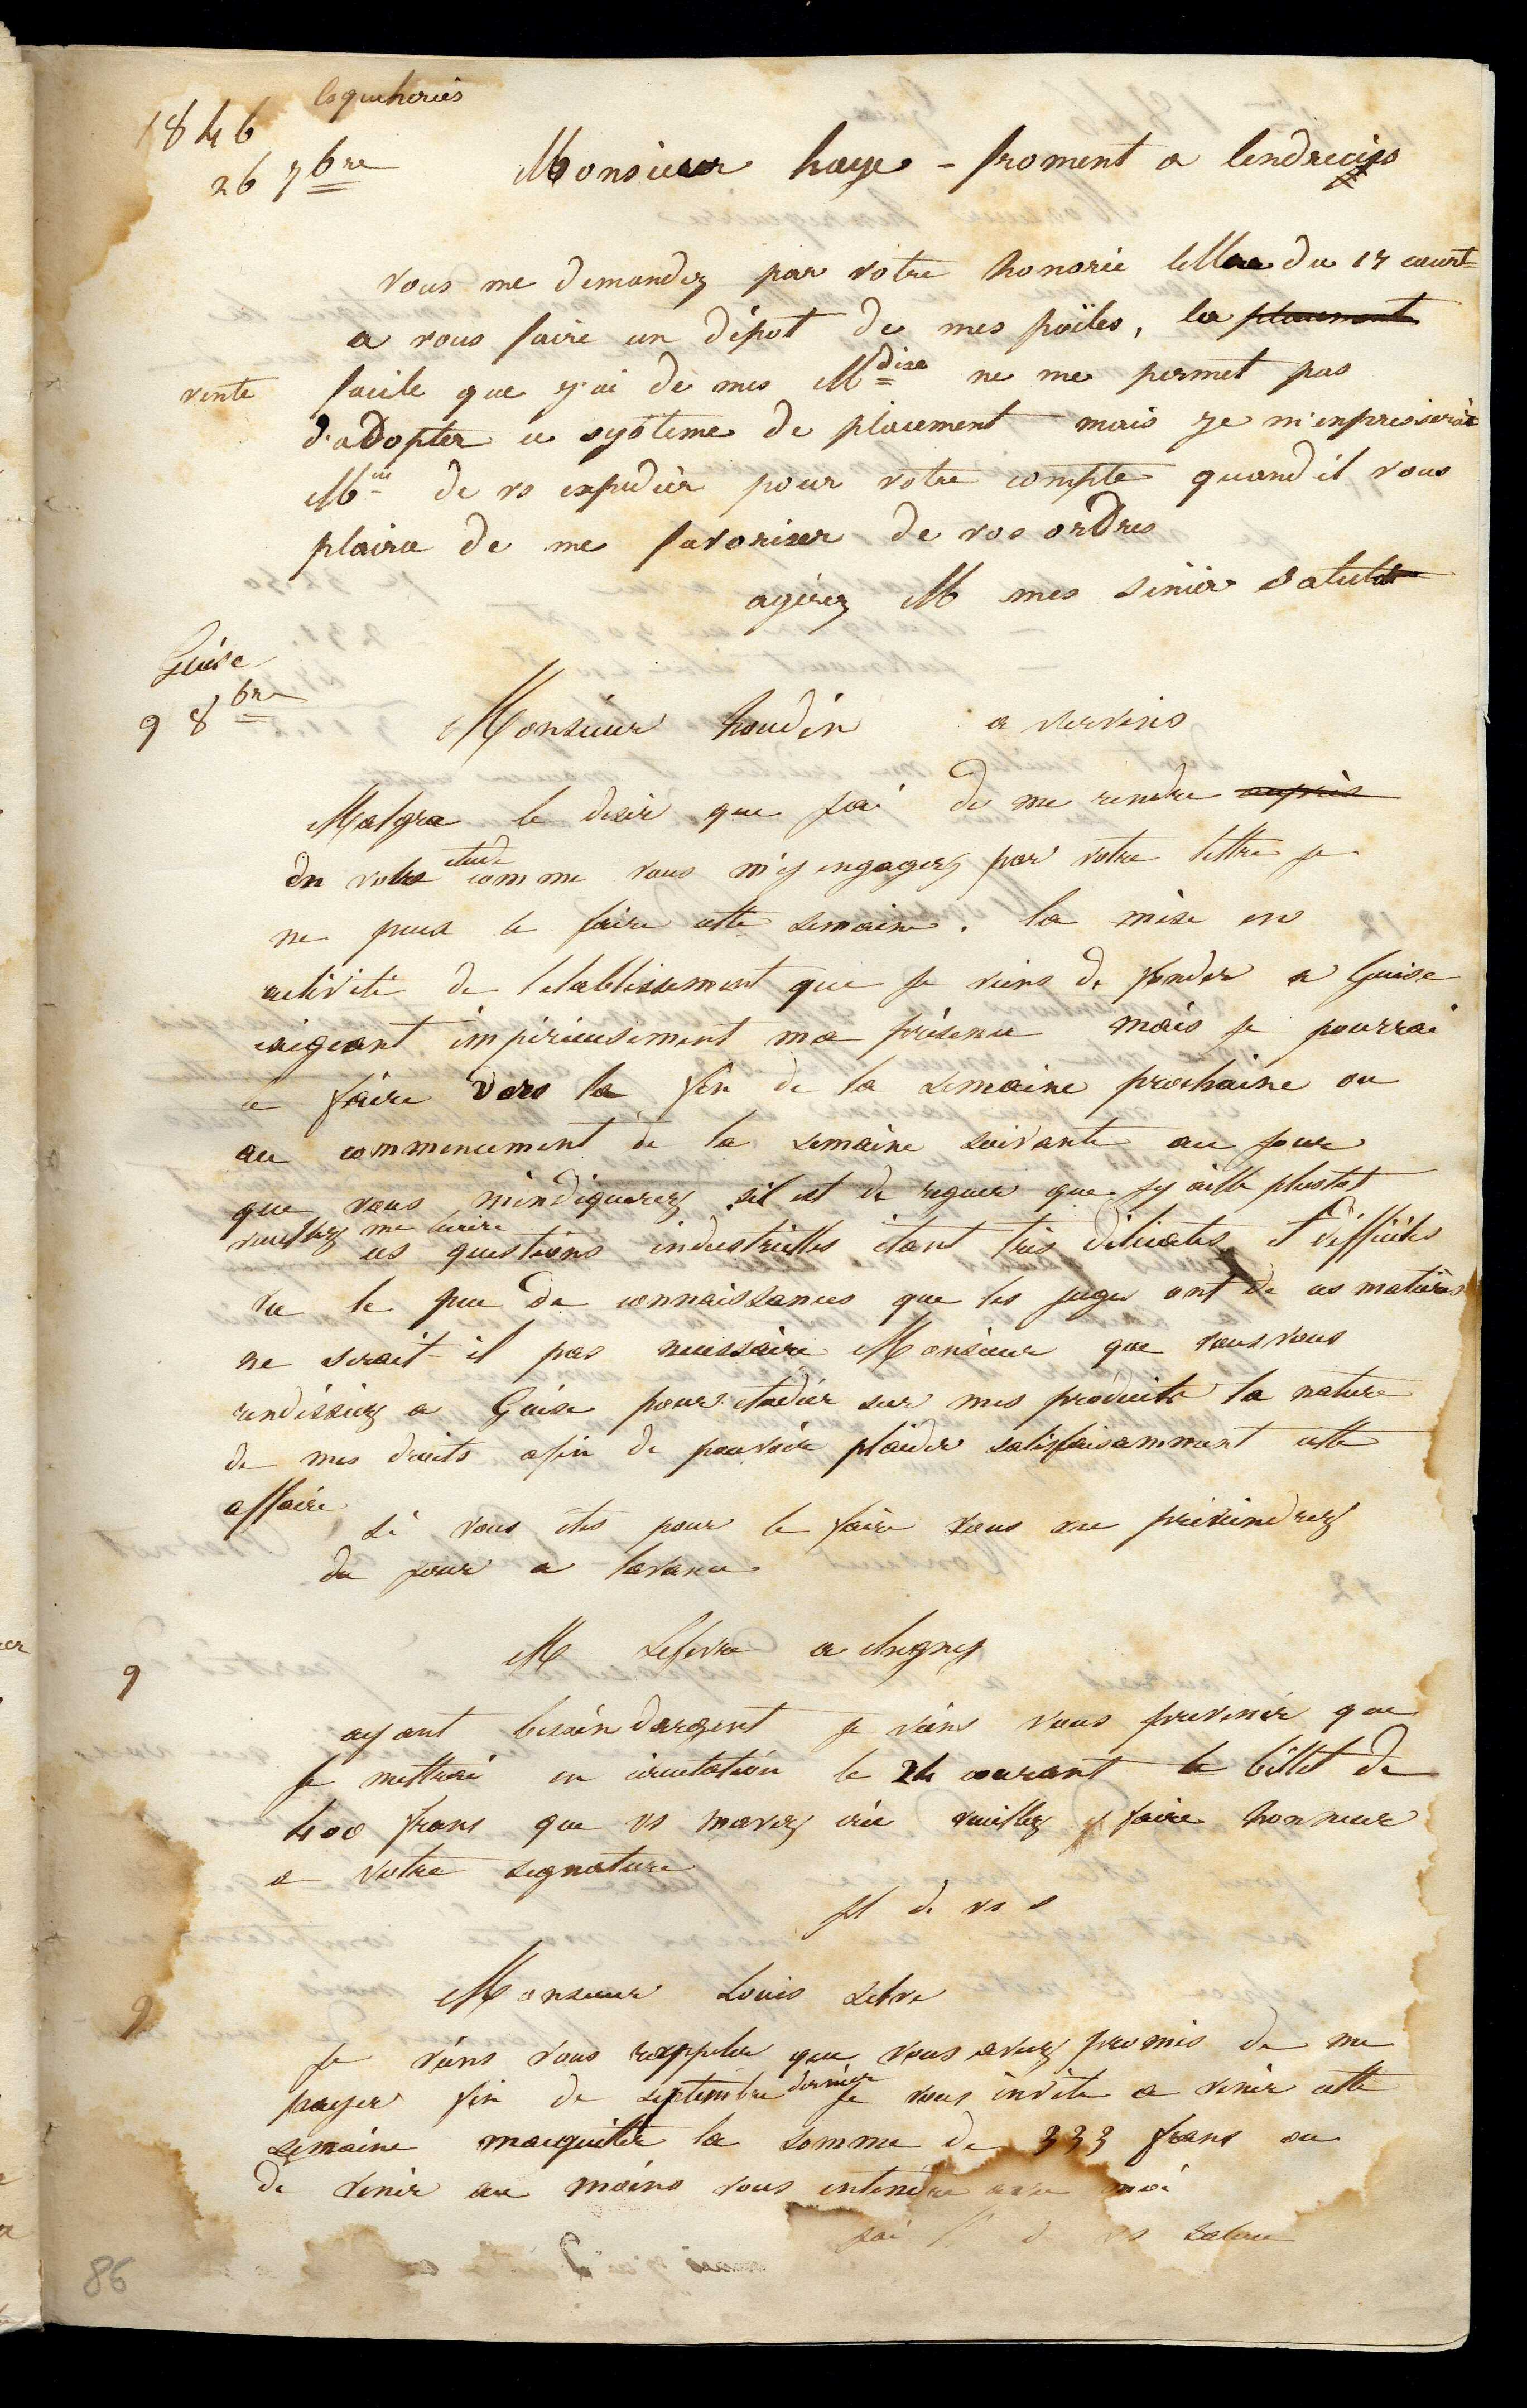 Esqueheries
1846
26 7bre Monsieur haye - froment a landrecies
vous me demandez par votre honorée lettre du 17 court
a vous faire un dépot de mes poëles, la placement
vente facile que j'ai de mes Mdise ne me permet pas
d'adopter ce systeme de placement mais je m'enpresserai
Mr de vs expedier pour votre compte quand il vous
plaira de me favoriser de vos ordres
agérez M mes sinïer salut
Guise
9 8bre Monsieur houdin a vervins
Malgra le desir que jai de me rendre auprès
en votre etude comme vous m'y engagez par votre lettre je
ne peux le faire cette semaine. la mise en
activité de letablissement que je viens de fonder a Guise
exigeant impérieusement ma présence mais je pourrai
le faire vers la fin de la semaine prochaine ou
au commencement de la semaine suivante au jour
que vous mindiquerez sil est de reguer que jy aille plustot
veuillez me lecrire
ces questions industrielles étant très délicates et difficiles
vu le peu de connaissances que les juges ont de ces matières
ne serait-il pas necessaire Monsieur que vous vous
rendissiez a Guise pour etudier sur mes produits la nature
de mes droits afin de pouvoir plaider satisfaisamment cette
affaire
si vous êtes pour le faire vous me préviendrez
du jour a lavance
9 M Lefevre a
ayant besoin dargent je viens vous prevenir que
je mettrai en circulation le 24 courant le billet de
400 frans que vs mavez crée veuillez y faire honneur
a votre signature
jl de vs s
9 Monsieur Louis
je viens vous rappeler que vous avez promis de me
payer fin de septembre dernier je vous invite a venir cette
semaine macquiter la somme de 333 frans ou
de venir au moins vous entendre avec moi
jai vs saluer
86